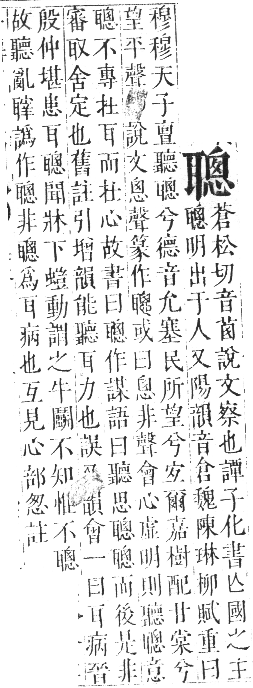 聰
蒼松切音茵說文察也譚子化書亡國之主
聰明出于人又陽韻音倉魏陳琳柳賦重曰
穆穆天子亶聽聰兮德音允塞民所望兮宐爾嘉樹配甘棠兮
望平聲說文悤聲篆作聰或曰悤非聲會心虛明則聽聰意
聰不專在耳而在心故書曰聰作謀語曰聽思聰聰而後是非
審取舍定也舊註引增韻能聽耳力也誤韻會一曰耳病晉
殷仲堪患耳聰聞牀下螘動謂之牛鬭不知惟不聰
故聽亂譌作聰非聰爲耳病也互見心部怱註